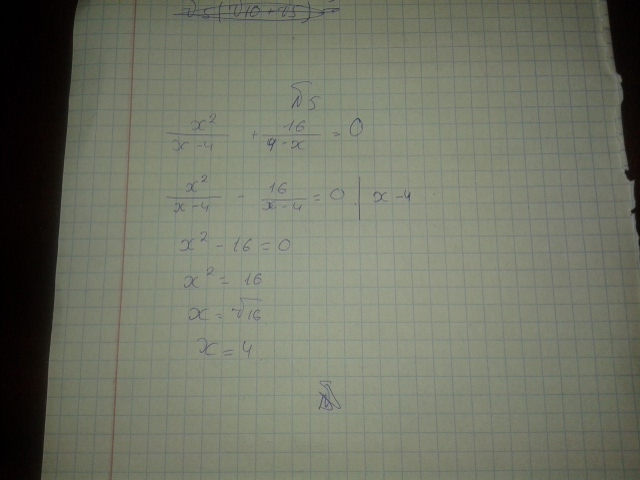 √5(√10+√5)=
№5
x²/(x-4) + 16/(4-x) = 0
x²/(x-4) - 16/(x-4) = 0 | x-4
x² - 16 = 0
x² = 16
x = √16
x = 4